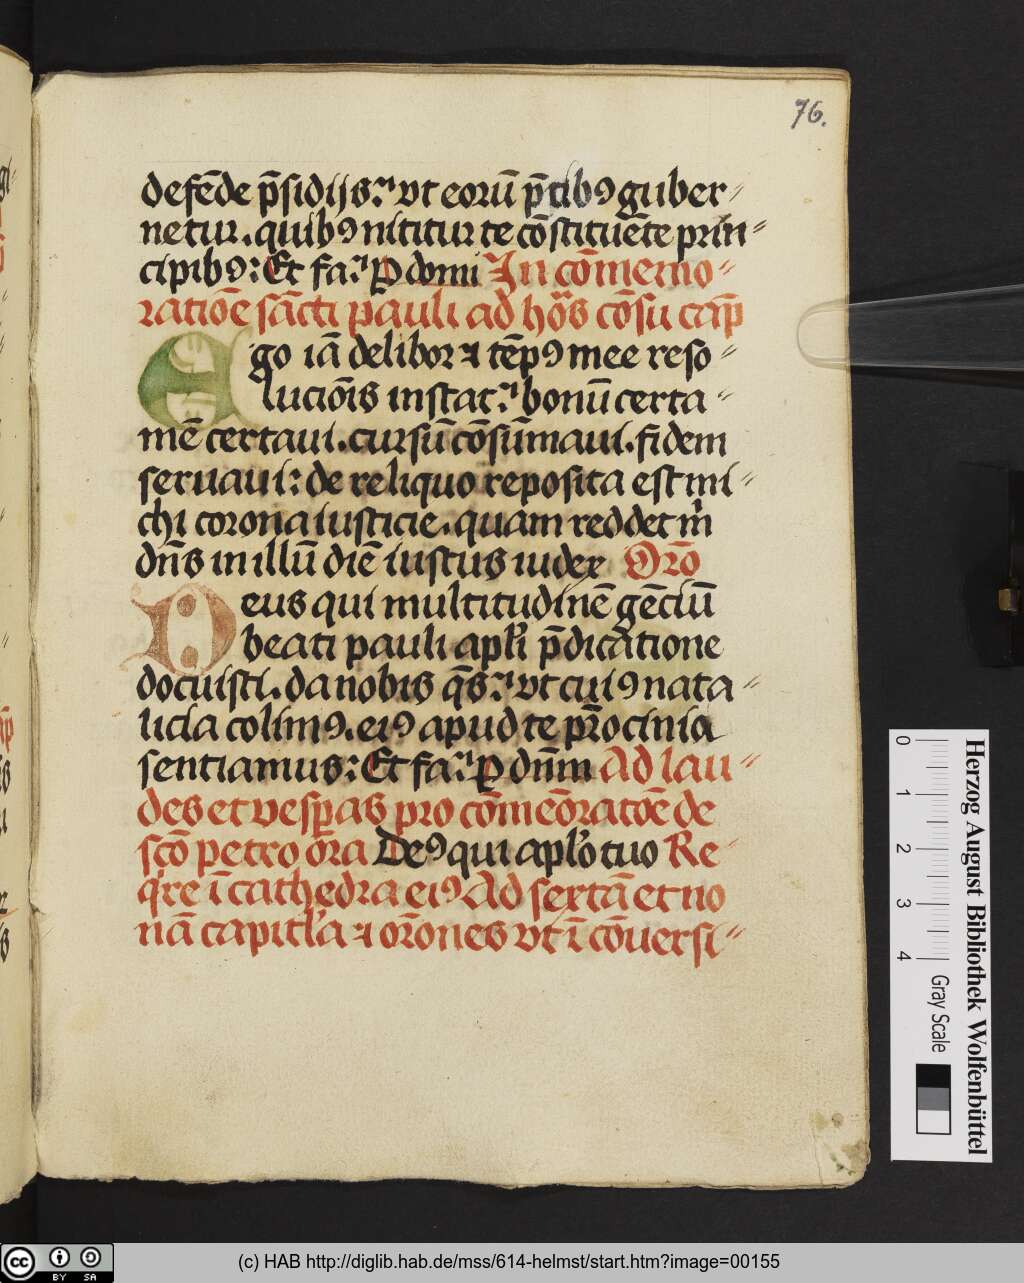 76.
defēde p̄sidijs: vt eorū p̄cibꝯ guber⸗
netur. quibꝯ nititur te cōstituēte prin⸗
cipibꝯ: Et fa: ꝑ domī In cōmemo⸗
ratiōe sācti pauli ad hōs cōsu cap̄
Ego iā delibor ⁊ tēpꝯ mee reso⸗
lucioīs instat: bonū certa⸗
mē certaui. cursū cōsūmaui. fidem
seruaui: de reliquo reposita est mi⸗
chi corona iusticie. quam reddet m̄
dn̄s in illū diē iustus iudex Orō
Deus qui multitudinē gēciū
beati pauli apl̄i p̄dicatione
docuisti. da nobis q̄s: vt cuiꝯ nata⸗
licia colimꝯ. eiꝯ apud te pr̄ocinia
sentiamus: Et fa: ꝑ dn̄m Ad lau⸗
des et vesꝑas pro cōmeōratōe de
scō petro ora Deꝯ qui apl̄o tuo Re⸗
q̄re ī cathedra eiꝯ Ad sextā et no
nā capitl̄a ⁊ orōnes vt ī cōuersi⸗
0 1 2 3 4
Herzog August Bibliothek Wolfenbüttel
Gray Scale
cc BY SA
(c) HAB http://diglib.hab.de/mss/614-helmst/start.htm?image=00155